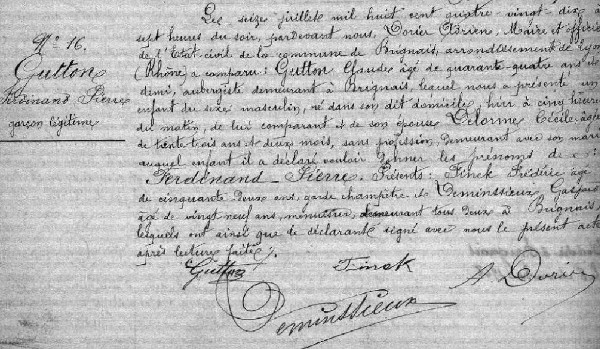 N° 16.
Gutton
Ferdinand Pierre
garçon légitime
Le seize juillet mil huit cent quatre-vingt-dix à
sept heures du soir, pardevant nous, Dorier Adrien, Maire et officier
de l'Etat civil de la commune de Brignais, arrondissement de Lyon
(Rhône) a comparu: Gutton Claude âgé de quarante-quatre ans et
demi, aubergiste demeurant à Brignais, lequel nous a présenté un
enfant du sexe masculin, né dans son dit domicile, hier à cinq heures
du matin, de lui comparant et de son épouse Delorme Cécile âgée
de trente trois ans et deux mois, sans profession, demeurant avec son mari
auquel enfant il a déclaré vouloir donner les prénoms de:
Ferdinand-Pierre. Présents: Finck Frédéric âgé
de cinquante deux ans, garde champêtre et Deminssieux, Gaspard
âgé de vingt neuf ans, menuisier, demeurant tous deux à Brignais,
lesquels ont ainsi que le déclarant signé avec nous le présent acte
après lecture faite.
Gutton Finck A Dorier
Deminssieux